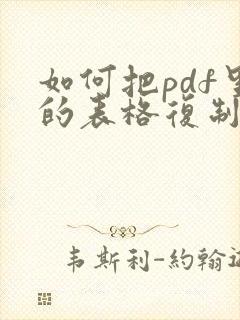 如何把pdf里
的表格復制
韦斯利-約翰逊